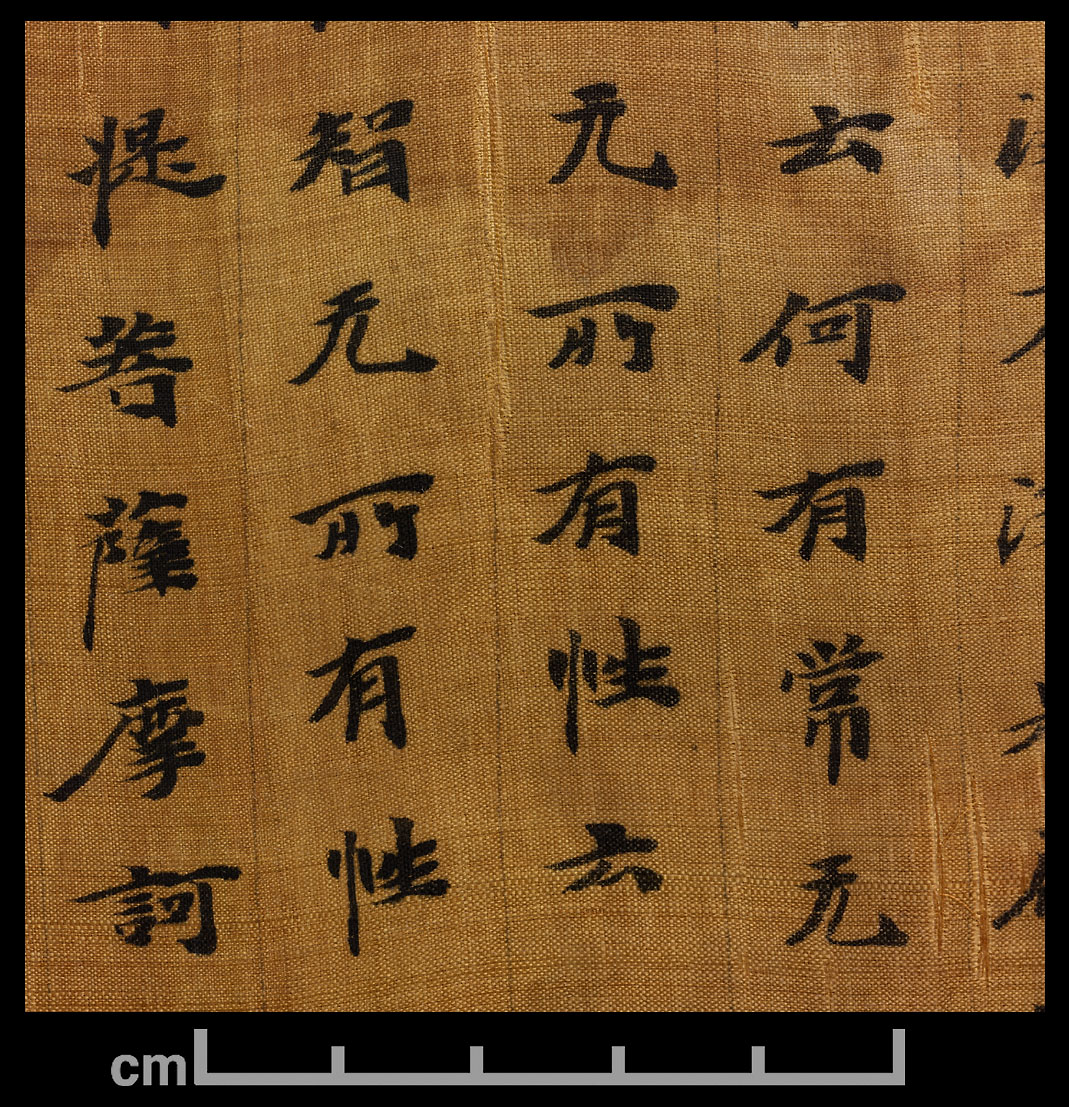 云何有常无
无所有性云
智无所有性
提菩薩摩訶
cm